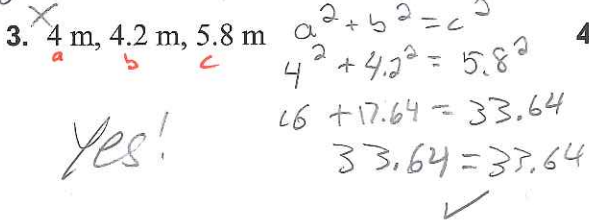 3. 4 m, 4.2 m, 5.8 m
a b c
a² + b² = c²
4² + 4.2² = 5.8²
16 + 17.64 = 33.64
33.64 = 33.64
✓
Yes!
4